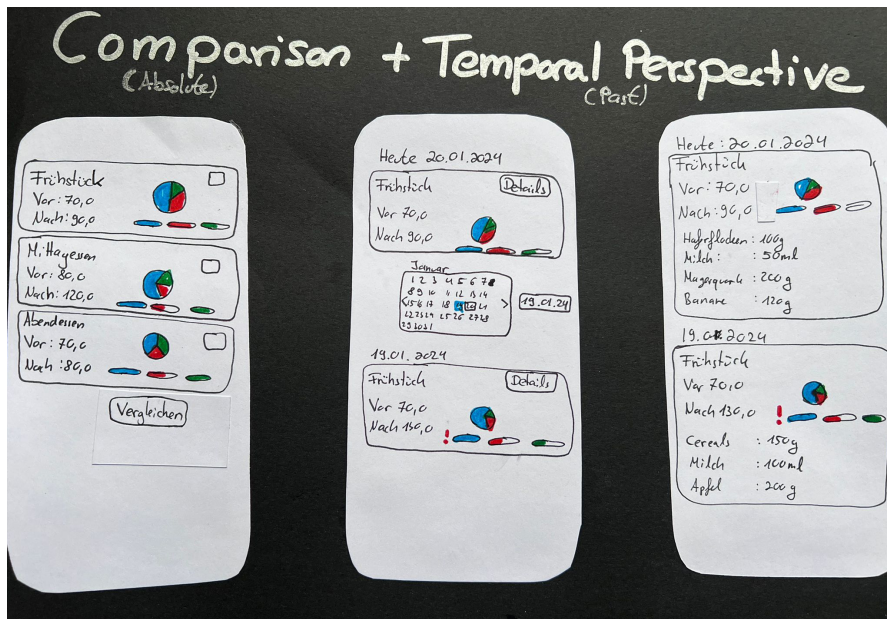 Comparison + Temporal Perspective
(Absolute)
(Past)
Frühstück
Vor: 70,0
Nach: 90,0
Mittagessen
Vor: 80,0
Nach: 120,0
Abendessen
Vor: 70,0
Nach: 80,0
Vergleichen
Heute 20.01.2024
Frühstück
Details
Vor 70,0
Nach 90,0
Januar
1 2 3 4 5 6 7
8 9 10 11 12 13 14
< 15 16 17 18 19 20 21 >
22 23 24 25 26 27 28
29 30 31
19.01.24
19.01.2024
Frühstück
Details
Vor 70,0
Nach 130,0
!
Heute: 20.01.2024
Frühstück
Vor: 70,0
Nach: 90,0
Haferflocken : 100g
Milch : : 50ml
Magerquark : 200g
Banane : 120g
19.01.2024
Frühstück
Vor 70,0
Nach 130,0
!
Cereals : 150g
Milch : 100ml
Apfel : 200g